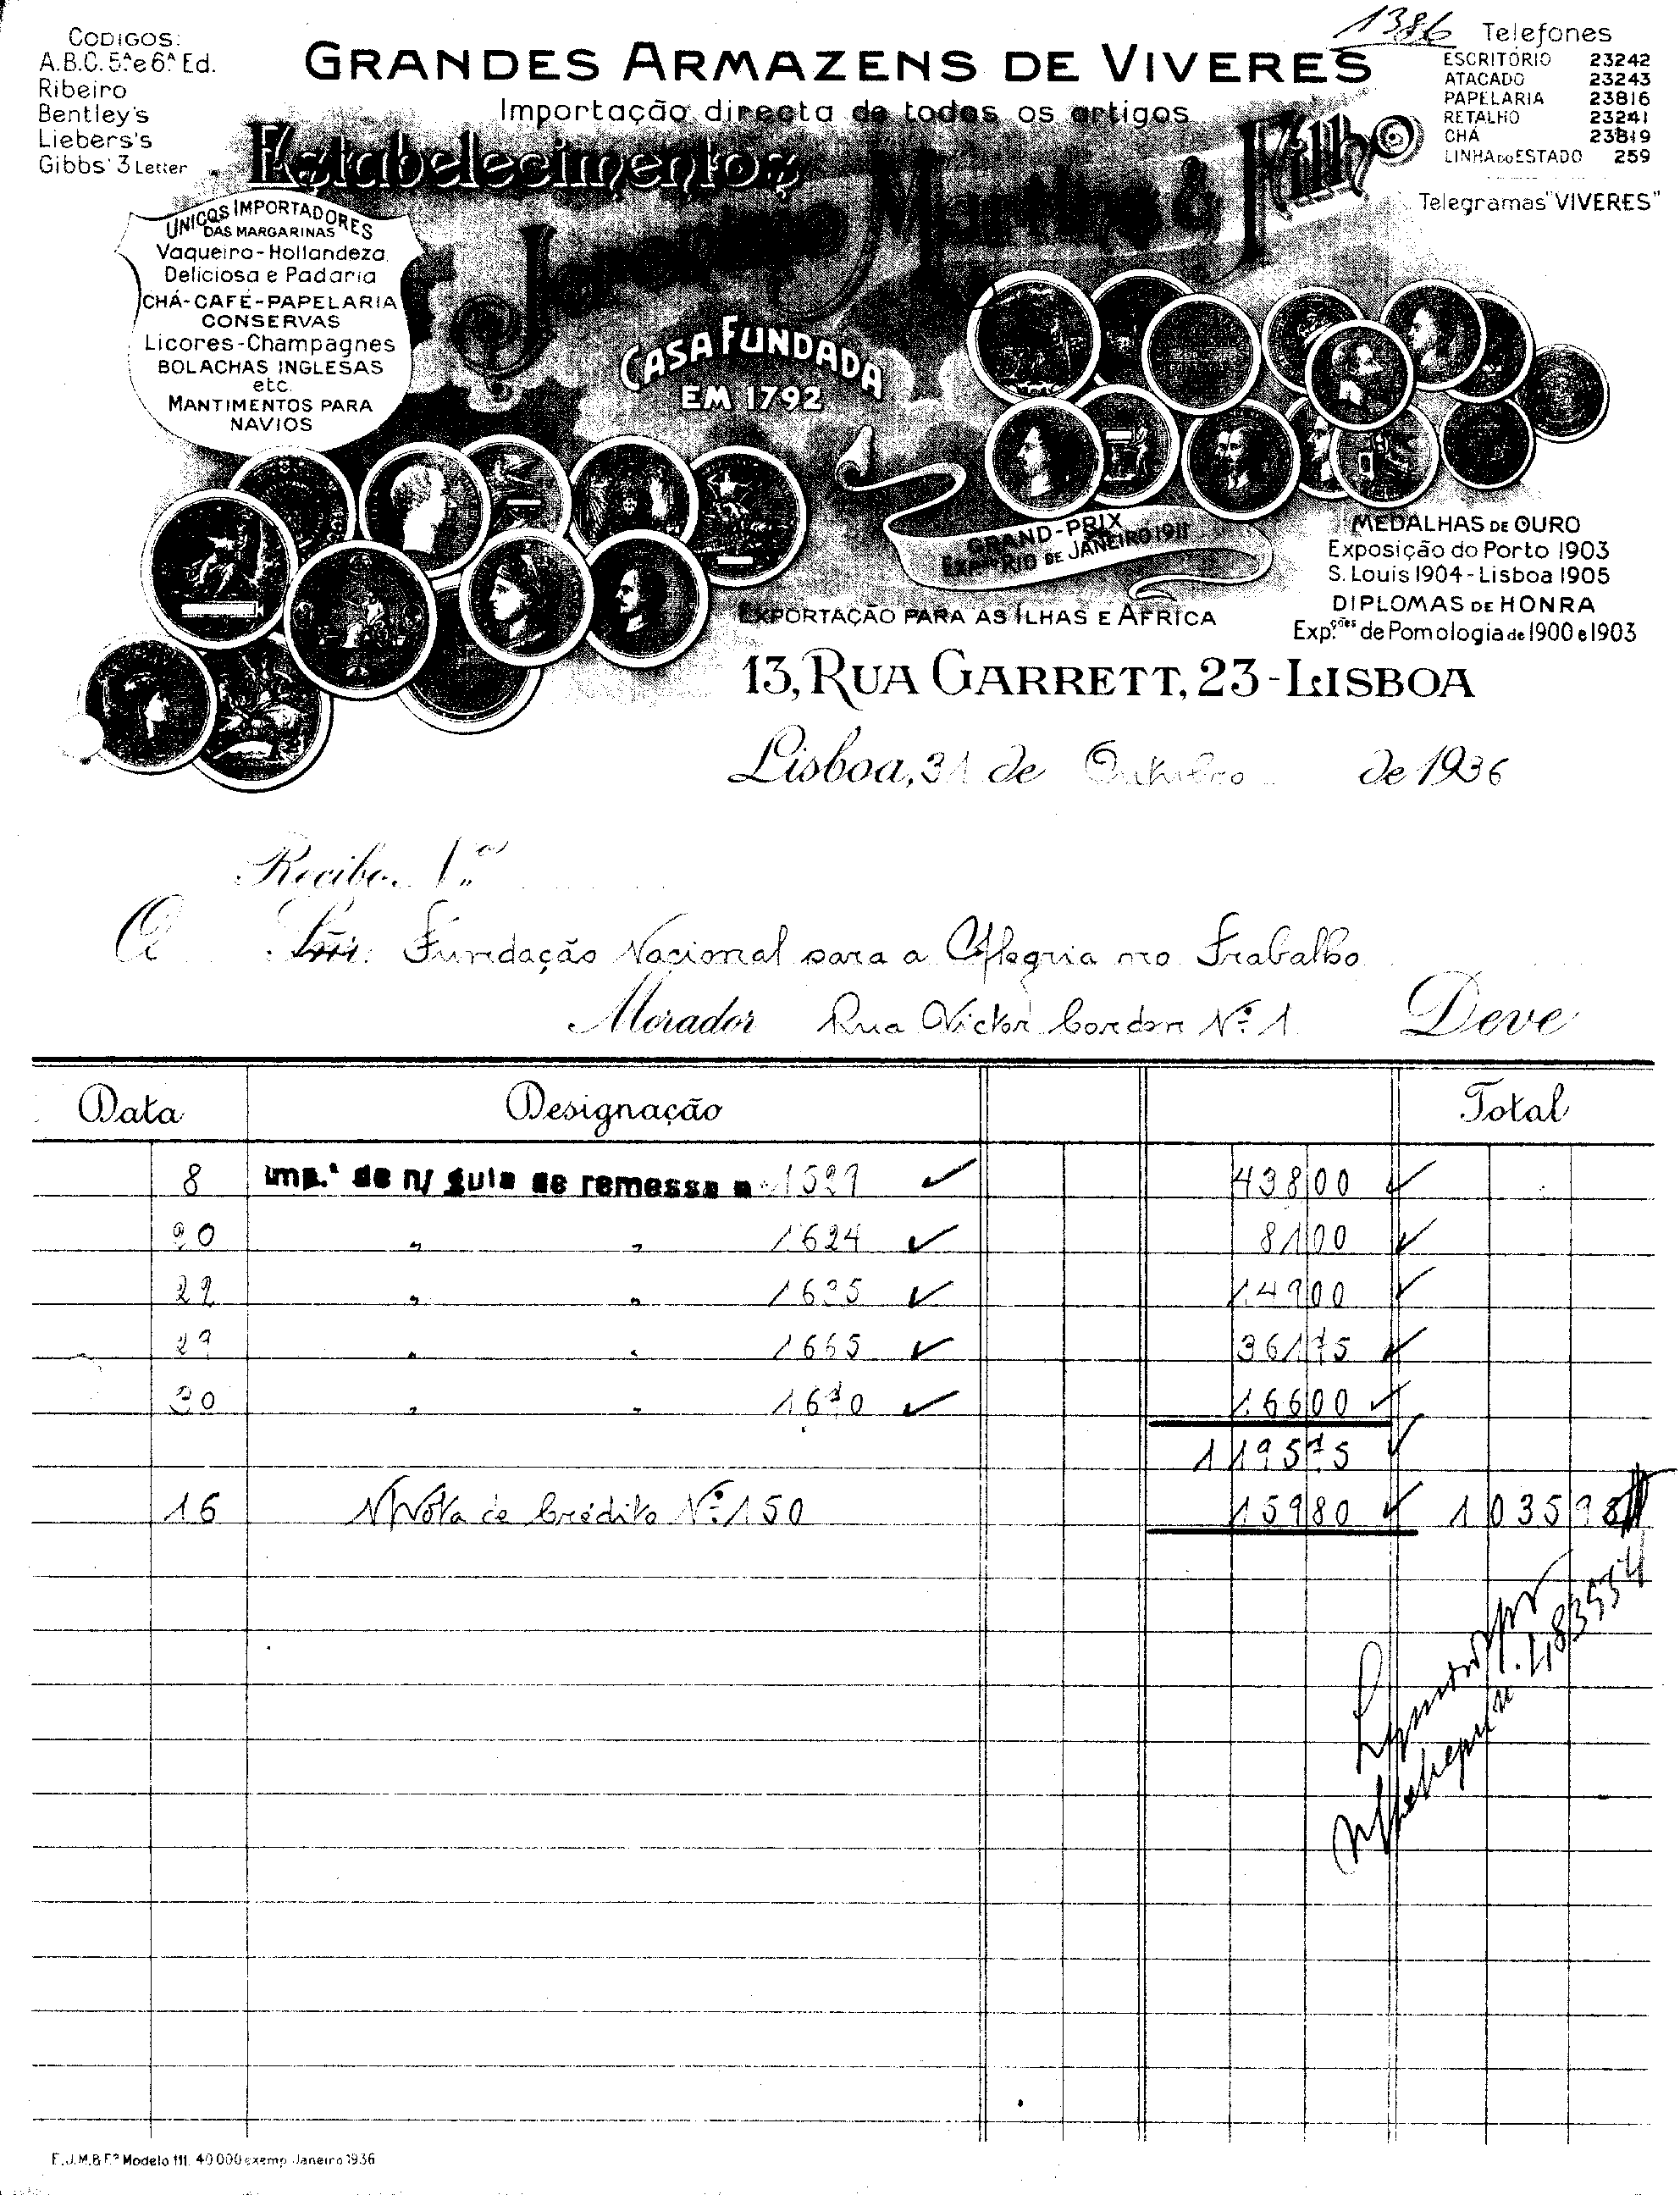 1386
CODIGOS:
A.B.C. 5.ª e 6.ª Ed.
Ribeiro
Bentley's
Liebers's
Gibbs' 3 Letter
GRANDES ARMAZENS DE VIVERES
Importação directa de todos os artigos
Telefones
ESCRITÓRIO 23242
ATACADO 23243
PAPELARIA 23816
RETALHO 23241
CHÁ 23819
LINHA DO ESTADO 259
Telegramas "VIVERES"
Estabelecimentos
Jeronimo Martins & Filho
UNICOS IMPORTADORES
DAS MARGARINAS
Vaqueiro-Hollandeza
Deliciosa e Padaria
CHÁ-CAFÉ-PAPELARIA
CONSERVAS
Licores-Champagnes
BOLACHAS INGLESAS
etc.
MANTIMENTOS PARA
NAVIOS
CASA FUNDADA
EM 1792
GRAND-PRIX
RIO DE JANEIRO 1911
MEDALHAS DE OURO
Exposição do Porto 1903
S. Louis 1904-Lisboa 1905
DIPLOMAS DE HONRA
Exp.ções de Pomologia de 1900 e 1903
EXPORTAÇÃO PARA AS ILHAS E AFRICA
13, RUA GARRETT, 23-LISBOA
Lisboa, 31 de Outubro de 1936
Recibo N.os
A Fundação Nacional para a Alegria no Trabalho
Morador Rua Victor Cordon Nº 1 Deve
Data Designação Total
8 imp.ª de n/ guia de remessa n 1529 43800
20 " " 1624 8100
22 " " 1635 14900
29 " " 1665 36175
30 " " 1670 16600
119575
16 N/Nota de Crédito Nº 150 15980 103598
E.J.M.& F.º Modelo 111. 40000 exemp. Janeiro 1936